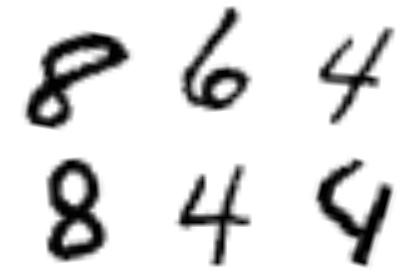 8 6 4
8 4 4